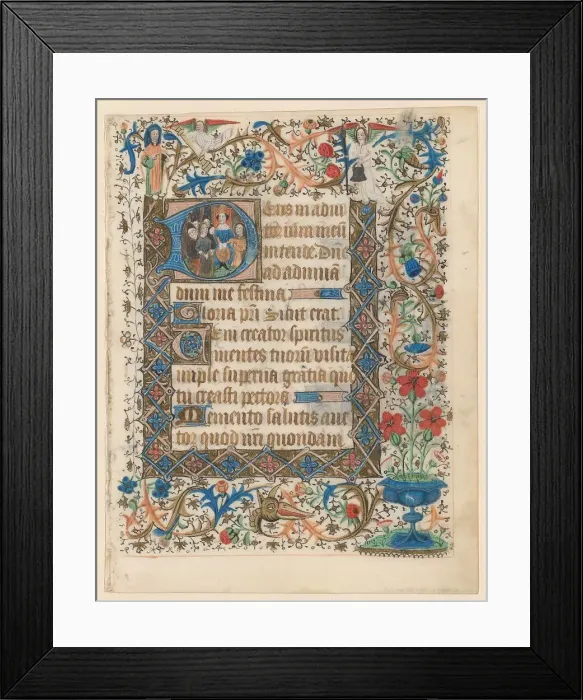 Deus in adiu
toriū meū
intende. Dn̄e
ad adiuuā
dum me festina
Gloria pr̄i Sicut erat.
Veni creator spiritus
mentes tuorū visita
imple superna grātia que
tu creasti pectora
Memento salutis auc
tor quod nr̄i quondam